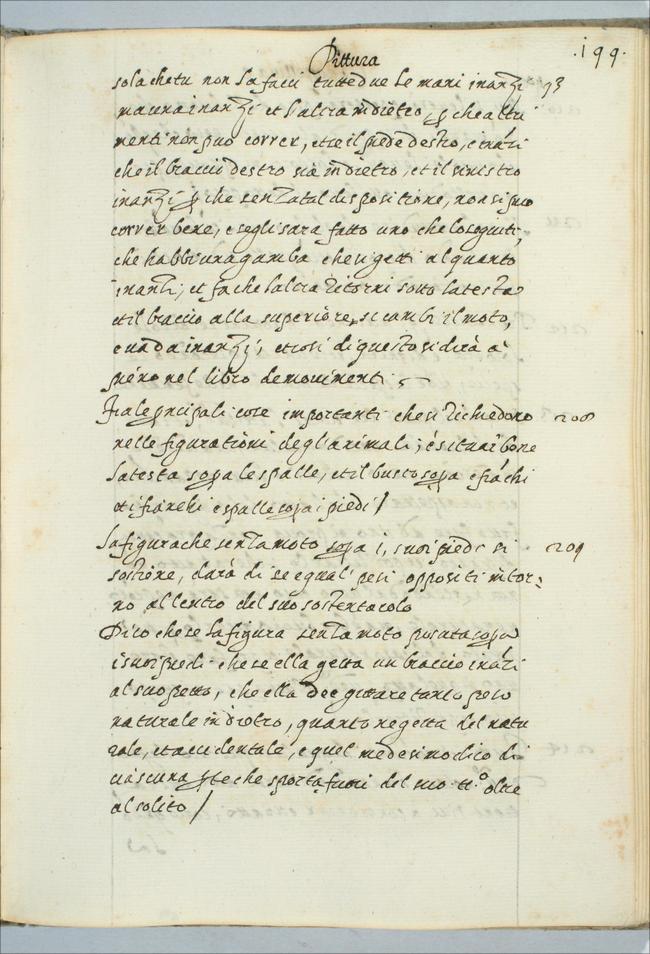 Pittura
.199.
sola che tu non La facci tutte due Le mani inanzi 93
ma una inanzi et l'altra indietro, p che altri
menti non puo correr, et se il piede destro, é inázi
che il braccio destro sia indietro, et il sinistro
inanzi p che senza tal dispositione, non si puo
correr bene, e se gli sara fatto uno che lo seguiti,
che habbi una gamba che si getti al quanto
inanzi; et fa che l'altra ritorni sotto la testa
et il braccio alla superiore, si cambi il moto,
e uada inanzi, et cosi di questo si dirà a
pieno nel libro de mouimenti
Fra le principali cose importanti che si richiedono 208
nelle figurationi degli animali; é situar bene
La testa sopa le spalle, et il busto sopa e fiáchi
et i fianchi e spalle sopa i piedi /
La figura che senza moto sopa i suoi piedi si 209
sostiene, darà di se equal' pesi oppositi intor-
no al centro del suo sostentacolo
Dico che se La figura senza moto posata sopa
i suoi piedi che se ella getta un braccio inázi
al suo petto, che ella dee gittare tanto peso
naturale indietro, quanto ne getta del natu
rale, et accidentale, e quel medesimo dico di
ciascuna pte che sporta fuori del suo tto oltre
al solito /